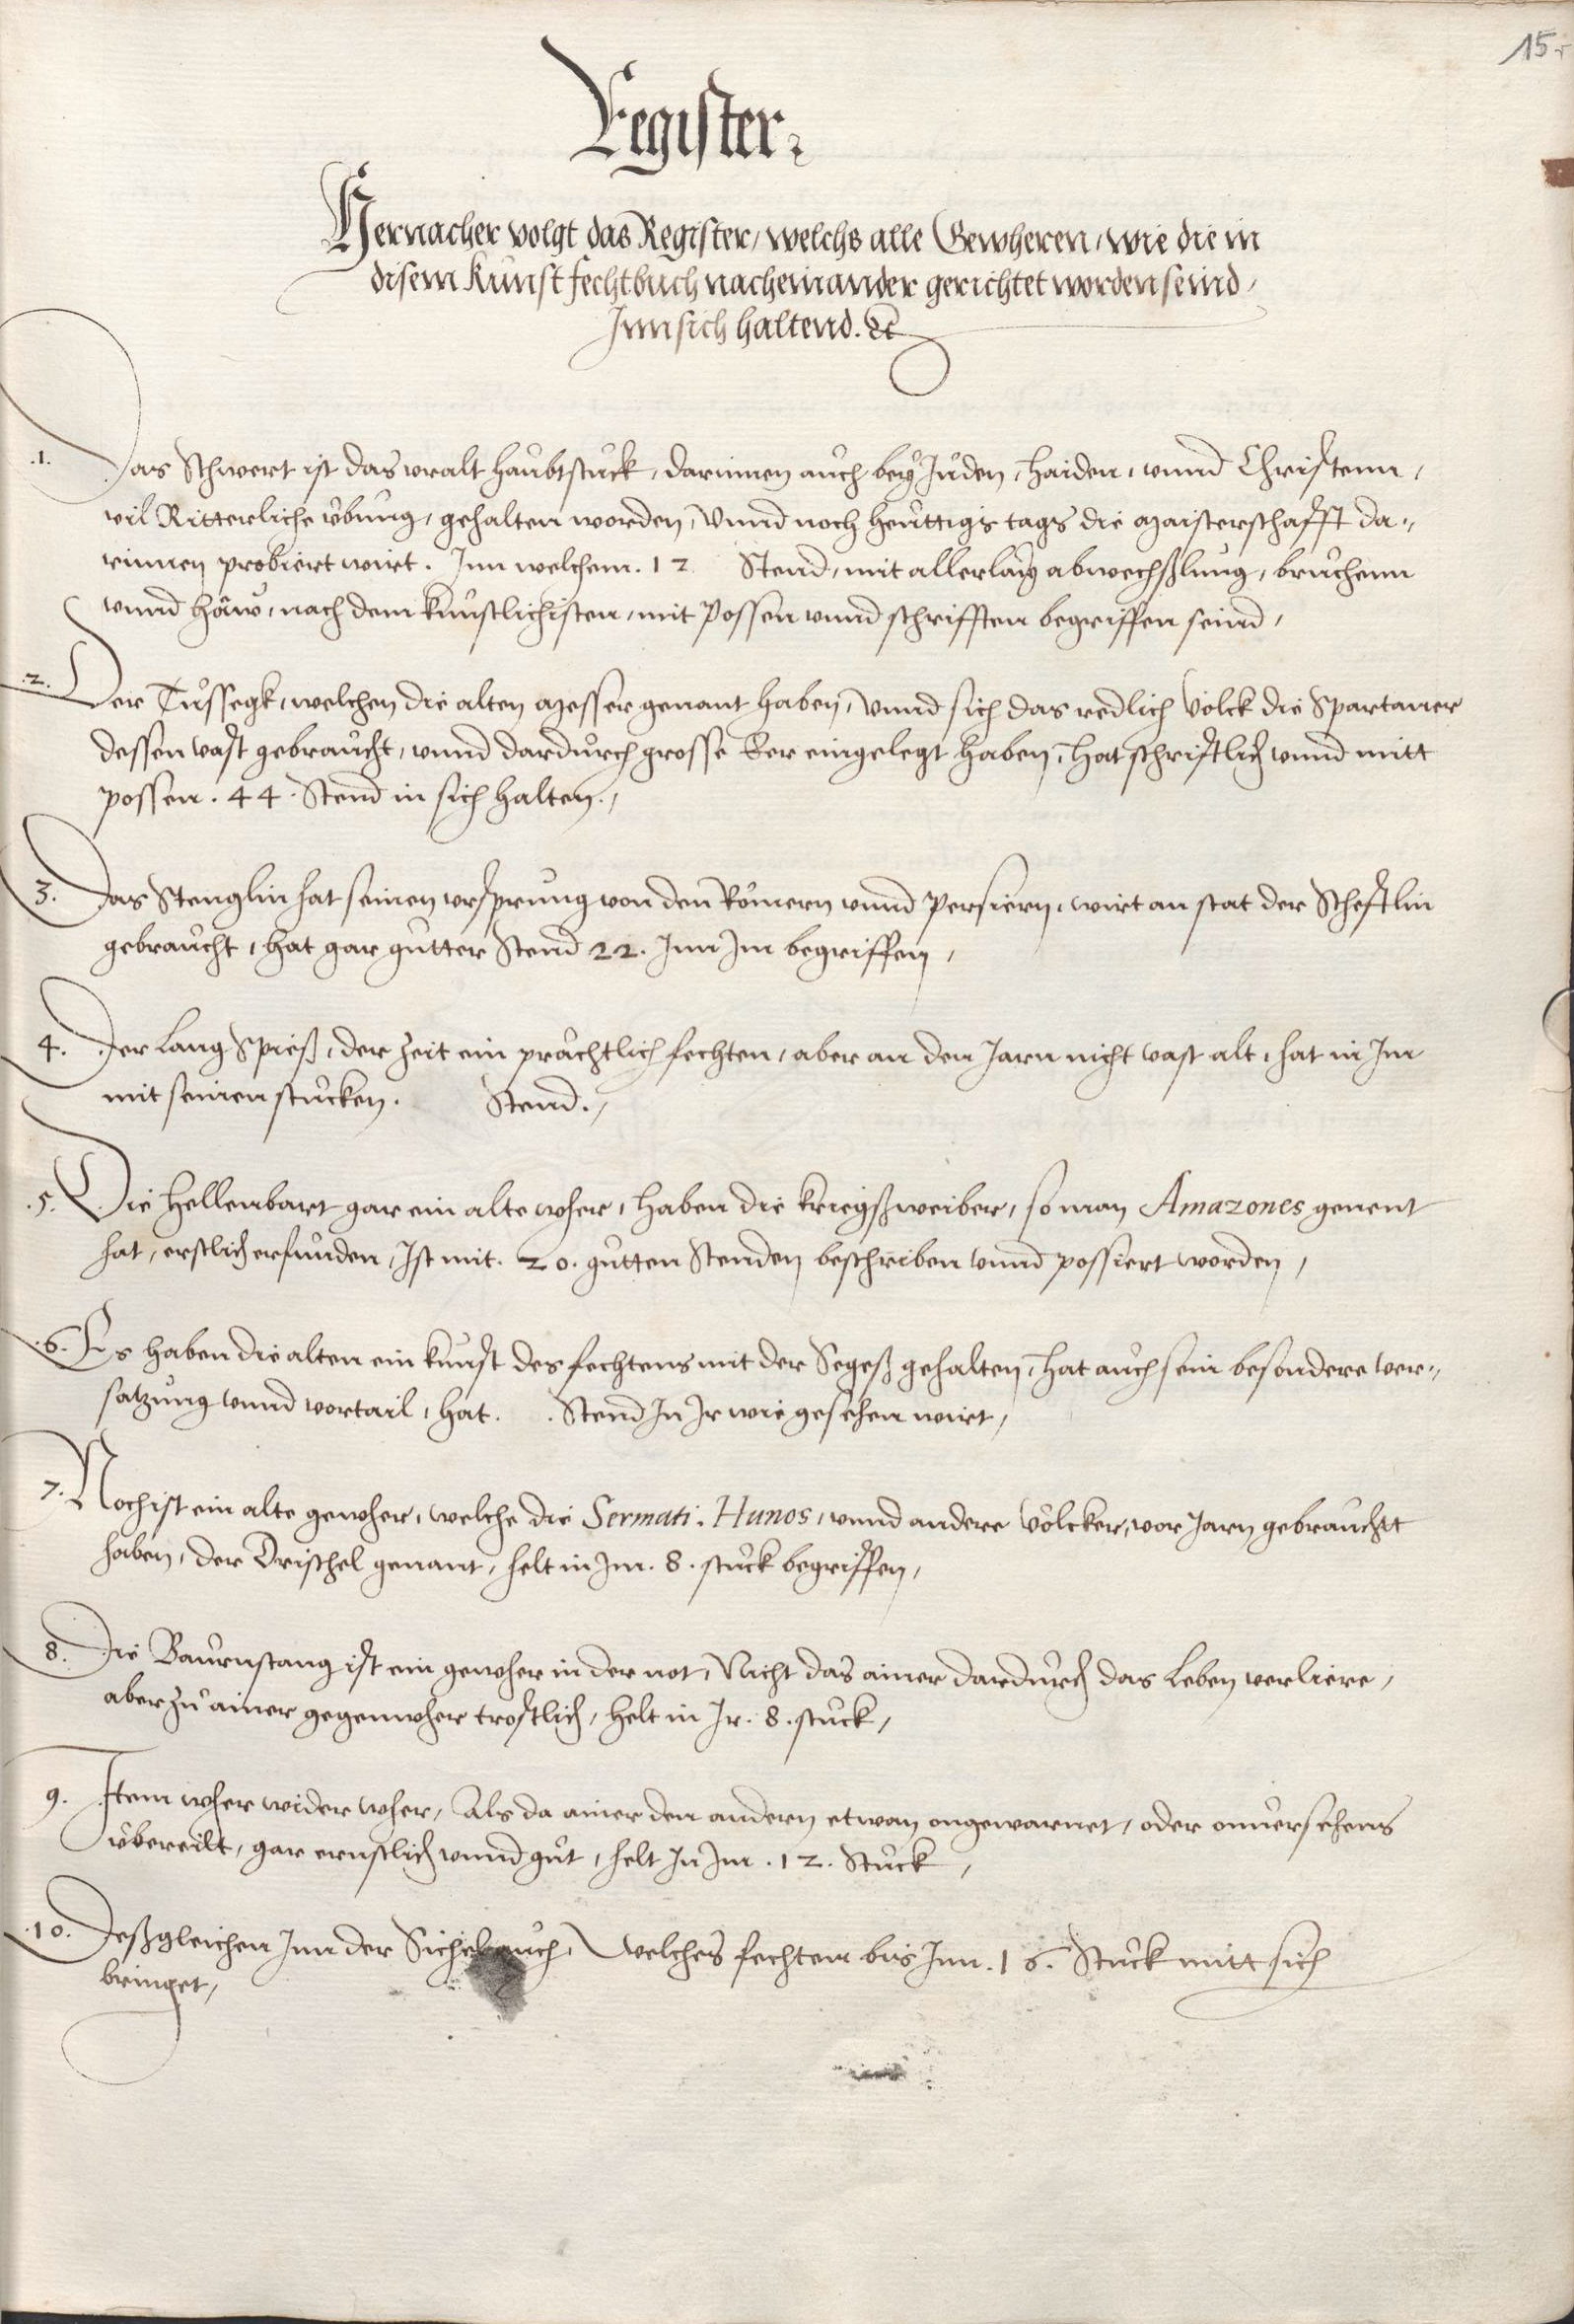 15r
Register.
Hernacher volgt das Register, welchs alle Gewheren, wie die in
disem kunst fechtbuch nacheinander gerichtet worden seind,
Jnn sich haltend. &c
.1. Das Schwert ist das uralt haubtstuck, darinnen auch bey Juden, haiden, unnd Christenn,
vil Ritterliche übung, gehalten worden, Unnd noch heuttigs tags die Maisterschafft da-
rinnen probiert wirt. Jnn welchem. 12 Stend, mit allerlay abwechßlung, bruchenn
unnd häw, nach dem kunstlichisten, mit Possen unnd schrifften begriffen seind,
.2. Der Tussegk, welchen die alten Messer genant haben, Unnd sich das redlich Volck die Spartaner
dessen vast gebraucht, unnd dardurch grosse Eer eingelegt haben, hat schriftlich unnd mitt
possen. 44. Stend in sich halten.,
3. Das Stenglin hat seinen ursprung von den Römern unnd Persiern, wirt an stat der Scheftlin
gebraucht, hat gar gutter Stend 22. Jnn Jm begriffen,
4. Der Lang Spieß, der zeit ein prächtlich fechten, aber an den Jarn nicht vast alt, hat in Jm
mit seinen stucken. Stend.,
.5. Die Hellenbart gar ein alte wher, haben die kriegßweiber, so man Amazones genent
hat, erstlich erfunden, Jst mit. 20. gutten Stenden beschriben unnd possiert worden,
.6. Es haben die alten ein kunst des fechtens mit der Segeß gehalten, hat auch sein besondere ver-
satzung unnd vortail, hat. . Stend Jn Jr wie gesehen wirt,
7. Noch ist ein alte gewher, welche die Sermati. Hunos, unnd andere Völcker, vor Jarn gebrauchtt
haben, der Drischel genant, helt in Jm. 8. stuck begriffen,
8. Die Baurnstang ist ein gewher in der not, Nicht das ainer dardurch das Leben verliere,
aber zu ainer gegenwher trostlich, helt in Jr. 8. stuck,
9. Jtem wher wider wher, Als da ainer den andern etwan ongewarnet, oder onversehens
übereilt, gar ernstlich unnd gut, helt Jn Jm. 12. Stuck,
.10. Deßgleichen Jnn der Sichel auch, Welches fechten bis Jnn. 16. Stuck mitt sich
bringet,